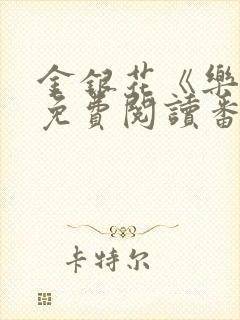 金銀花《樂
免費閱讀番
卡特尔